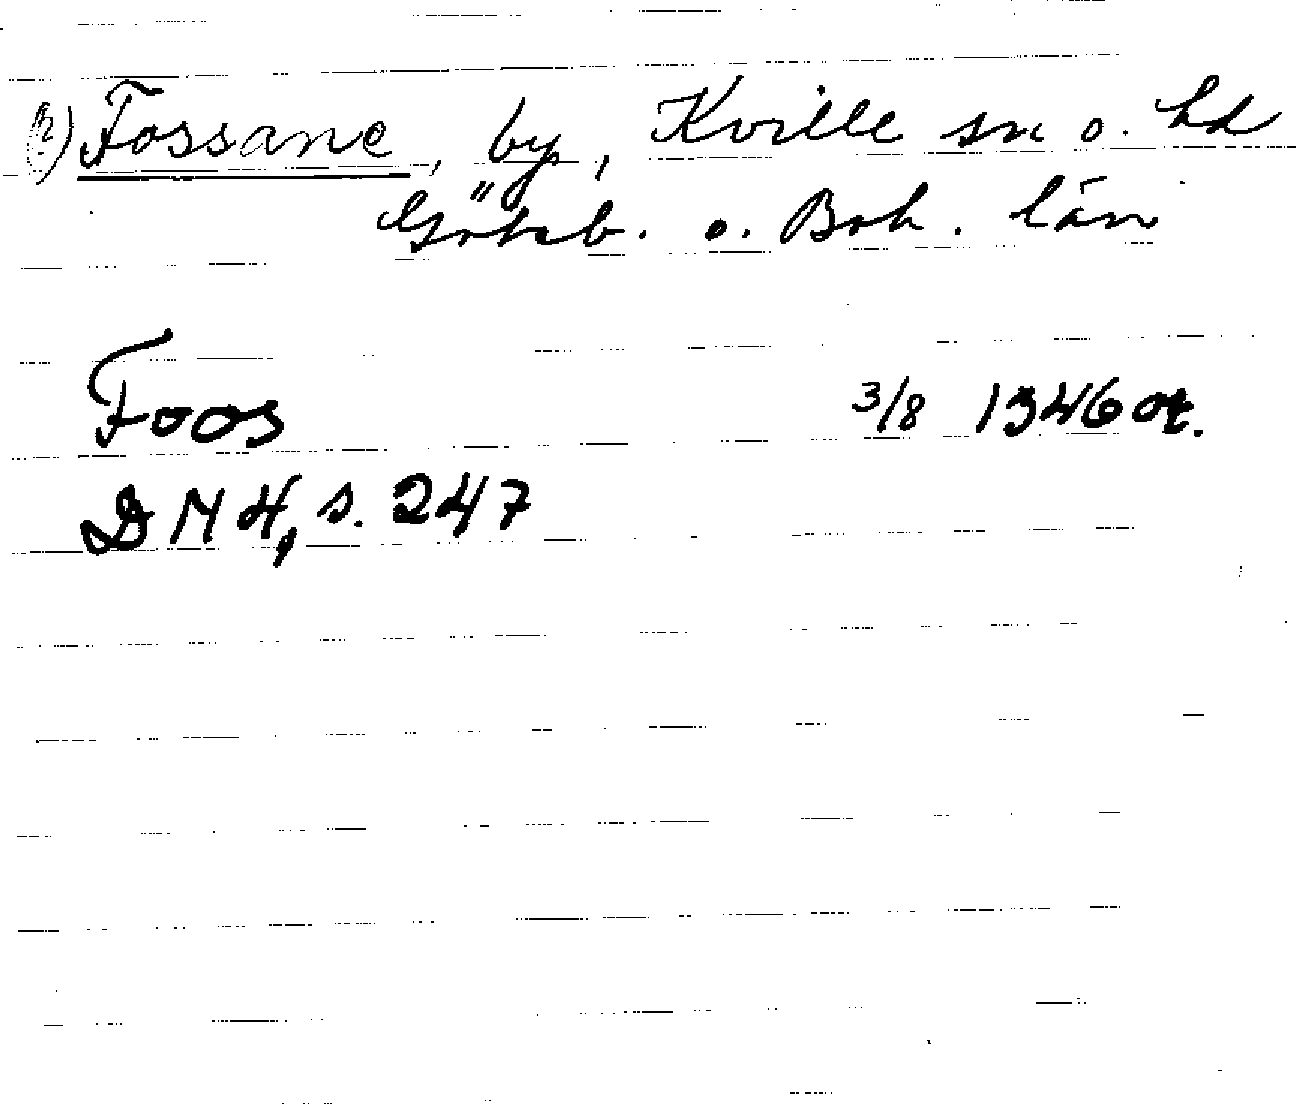 Fossane, by, Kville sn o. hd
Göteb. o. Boh. län
Foos 3/8 1346 or.
DN 4, s. 247